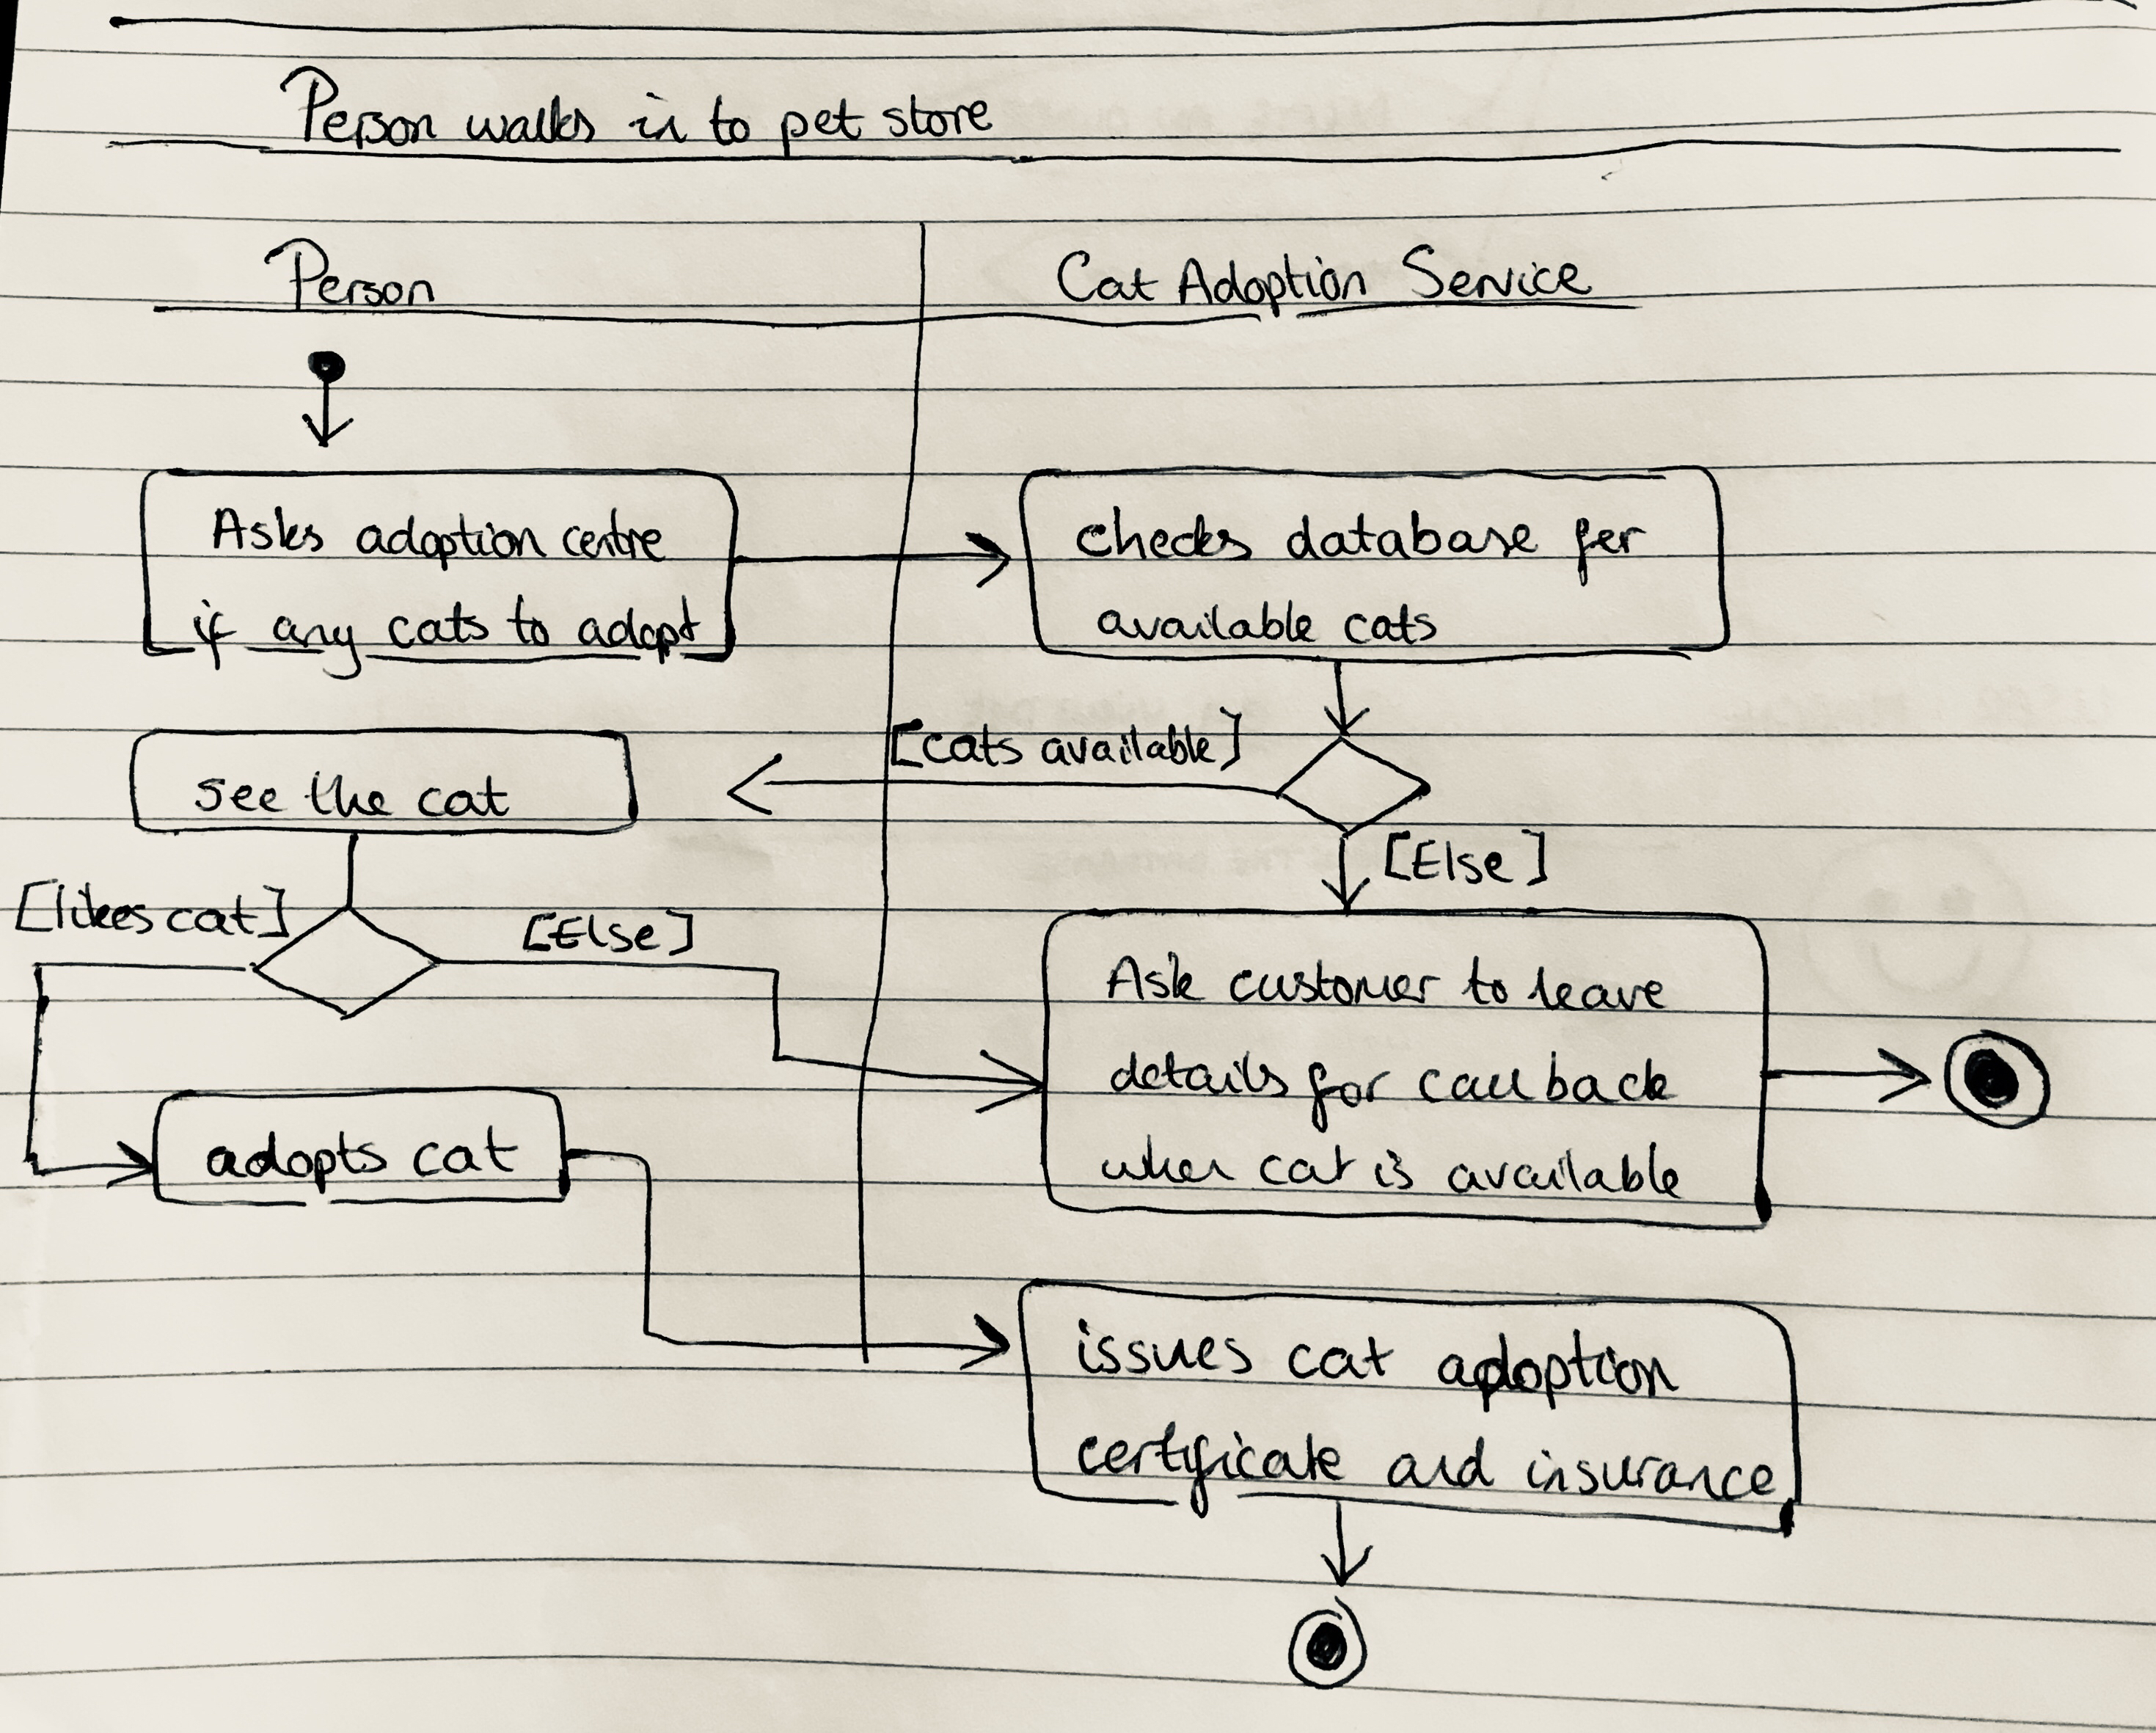 Person walks in to pet store
Person
Cat Adoption Service
Asks adoption centre
if any cats to adopt
checks database for
available cats
[cats available]
see the cat
[Else]
[likes cat]
[Else]
Ask customer to leave
details for call back
when cat is available
adopts cat
issues cat adoption
certificate and insurance